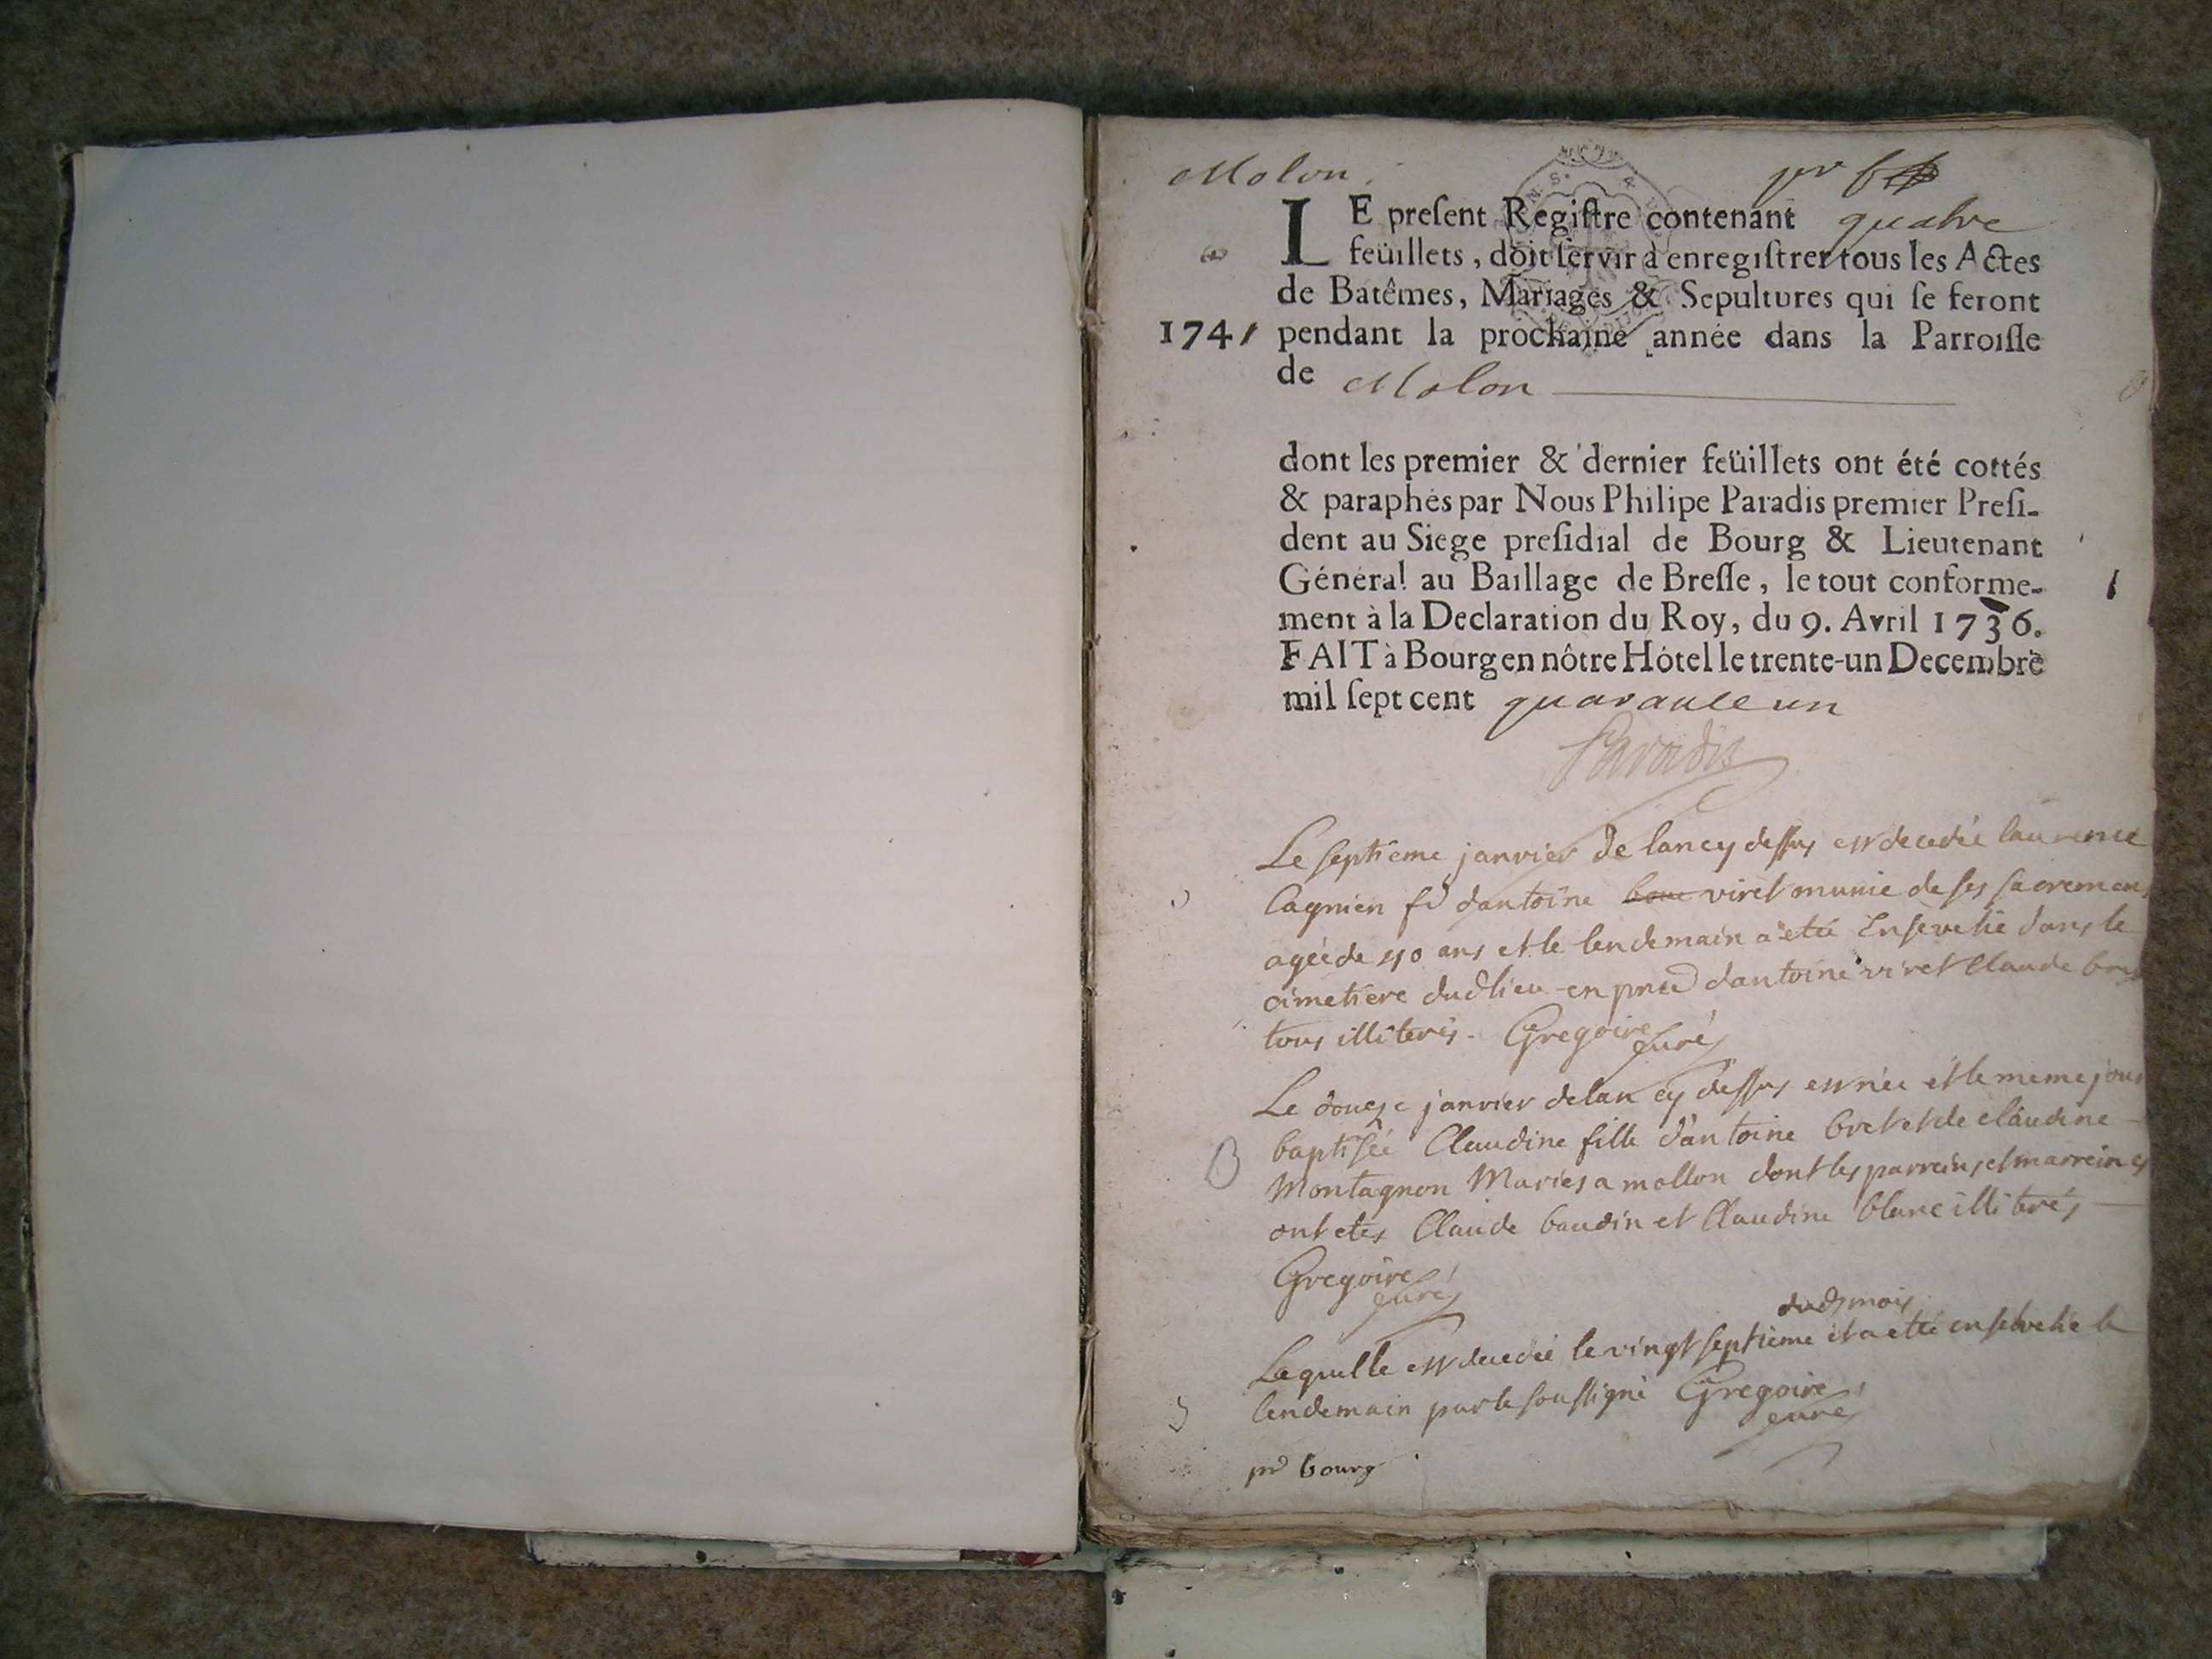 Molon. pr
LE preſent Regiſtre contenant quatre
feüillets, doit ſervir à enregiſtrer tous les Actes
de Batêmes, Mariages & Sepultures qui ſe feront
1741 pendant la prochaine année dans la Parroiſſe
de Molon
dont les premier & dernier feüillets ont été cottés
& paraphés par Nous Philipe Paradis premier Preſi-
dent au Siege preſidial de Bourg & Lieutenant
Général au Baillage de Breſſe, le tout conforme-
ment à la Declaration du Roy, du 9. Avril 1736.
FAIT à Bourg en nôtre Hôtel le trente-un Decembre
mil ſept cent quarante un
Paradis
Le septieme janvier de lancy dessus est decedée laurence
Cagnien fe dantoine viret munie de ses sacremens
agée de ans et le lendemain a eteé Ensevelie dans le
cimetiere dud lieu en pnce dantoine viret Claude
tous illiterés. Gregoire curé
Le douze janvier delan cy dessus est née et le meme jour
B baptisée Claudine fille d'antoine bret et de claudine
Montagnon Mariés a mollon dont les parreins et marreines
ont etes Claude baudin et Claudine blanc illiterés
Gregoire curé
dud mois
Laquelle est decedée le vingt septieme et a etée ensevelie le
lendemain par le soussigné Gregoire curé
pr bourg